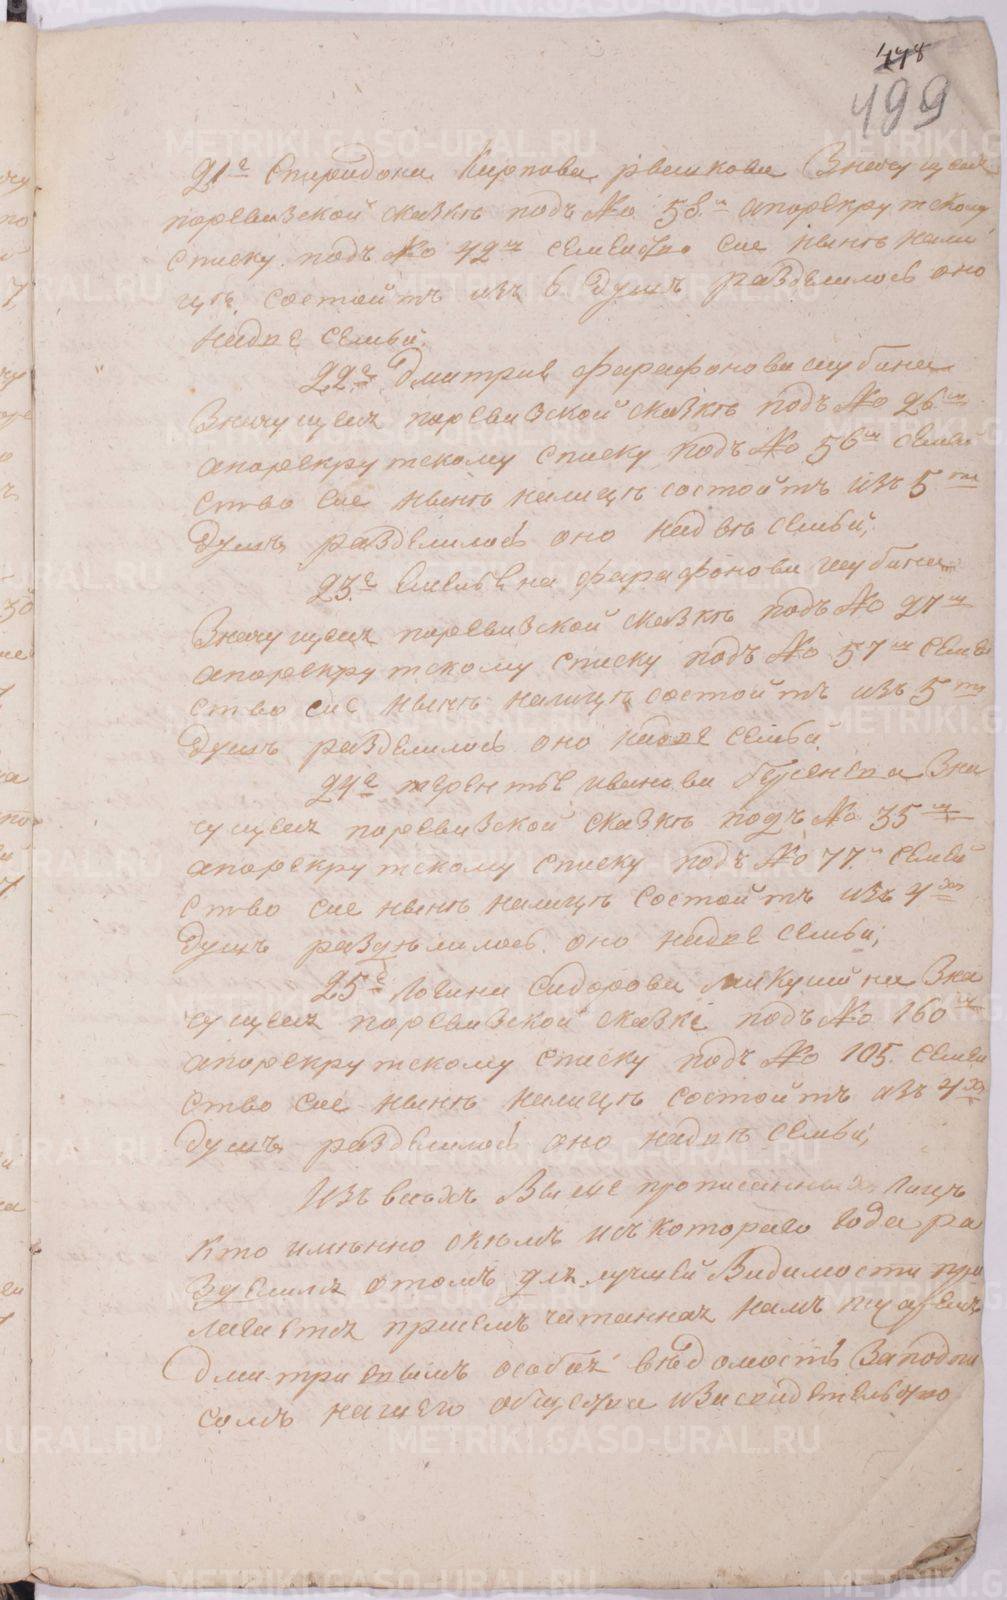 448
499
21е Спиридона Карпова Значущея
поревизской сказкѣ подъ № 58.м апорекрутскому
списку подъ № 42м семейство сие нынѣ нали
цѣ состоитъ изъ 6 душъ разделилось оно
надве семьи.
22е Дмитрия фарафонова шубина
Значущея поревизской сказкѣ подъ № 26м
апорекрутскому списку подъ № 56м семей
ство сие нынѣ налицѣ состоитъ изъ 5ти
душъ разделилось оно надвѣ семьи,
23.е Емельяна фарафонова шубина
Значущея поревизской сказкѣ подъ № 27м
апорекрутскому списку подъ № 57м семей
ство сие нынѣ налицѣ состоитъ изъ 5ти
душъ разделилось оно надве семьи.
24е терентья иванова Зна
чущея поревизской сказкѣ подъ № 35м
апорекрутскому списку подъ № 77.м семей
ство сие нынѣ налицѣ состоитъ изъ 4хъ
душъ раздѣлилось оно надве семьи;
25е логина сидорова микушина Зна
чущея поревизской сказке подъ № 160м
апорекрутскому списку подъ № 105. семей
ство сие нынѣ налицѣ состоитъ изъ 4хъ
душъ разделилось оно надвѣ семьи;
Изъ всѣхъ Выше прописанныхъ лицъ
Кто имѣнно скѣмъ исъкотораго года ра
зделился отомъ для лучшей Видимости при
лагается присемъ читанная намъ
дмитриевымъ особая вѣдомость Заподпи
сомъ нашего общества изасвидетельство